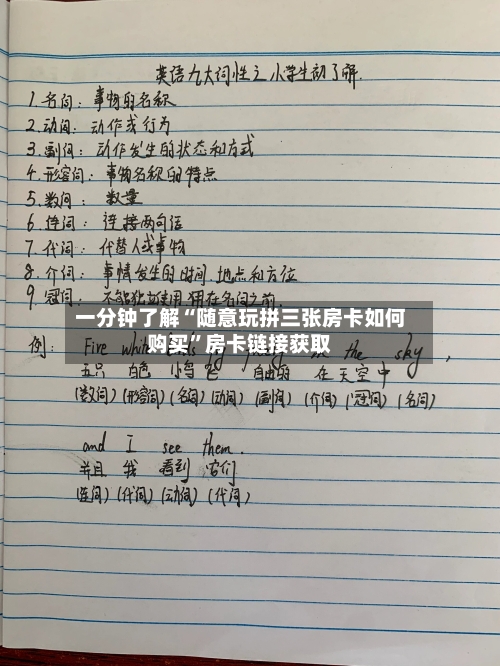 英语九大词性之小学生初了解.
1.名词：事物的名称
2.动词：动作或行为
3.副词：动作发生的状态和方式
4.形容词：事物名称的特点
5.数词：数量
6.连词：连接两句话
7.代词：代替人或事物
8.介词：事情发生的时间.地点和方位
9.冠词：不能独立使用.用在名词之前.
一分钟了解“随意玩拼三张房卡如何
购买”房卡链接获取
例： Five white the sky ,
五只 白色 小鸟 飞 自由的 在天空中
(数词) (形容词) (名词) (动词) (副词) (介词) (冠词) (名词)
and I see them.
并且 我 看到 它们
(连词) (代词) (动词) (代词)